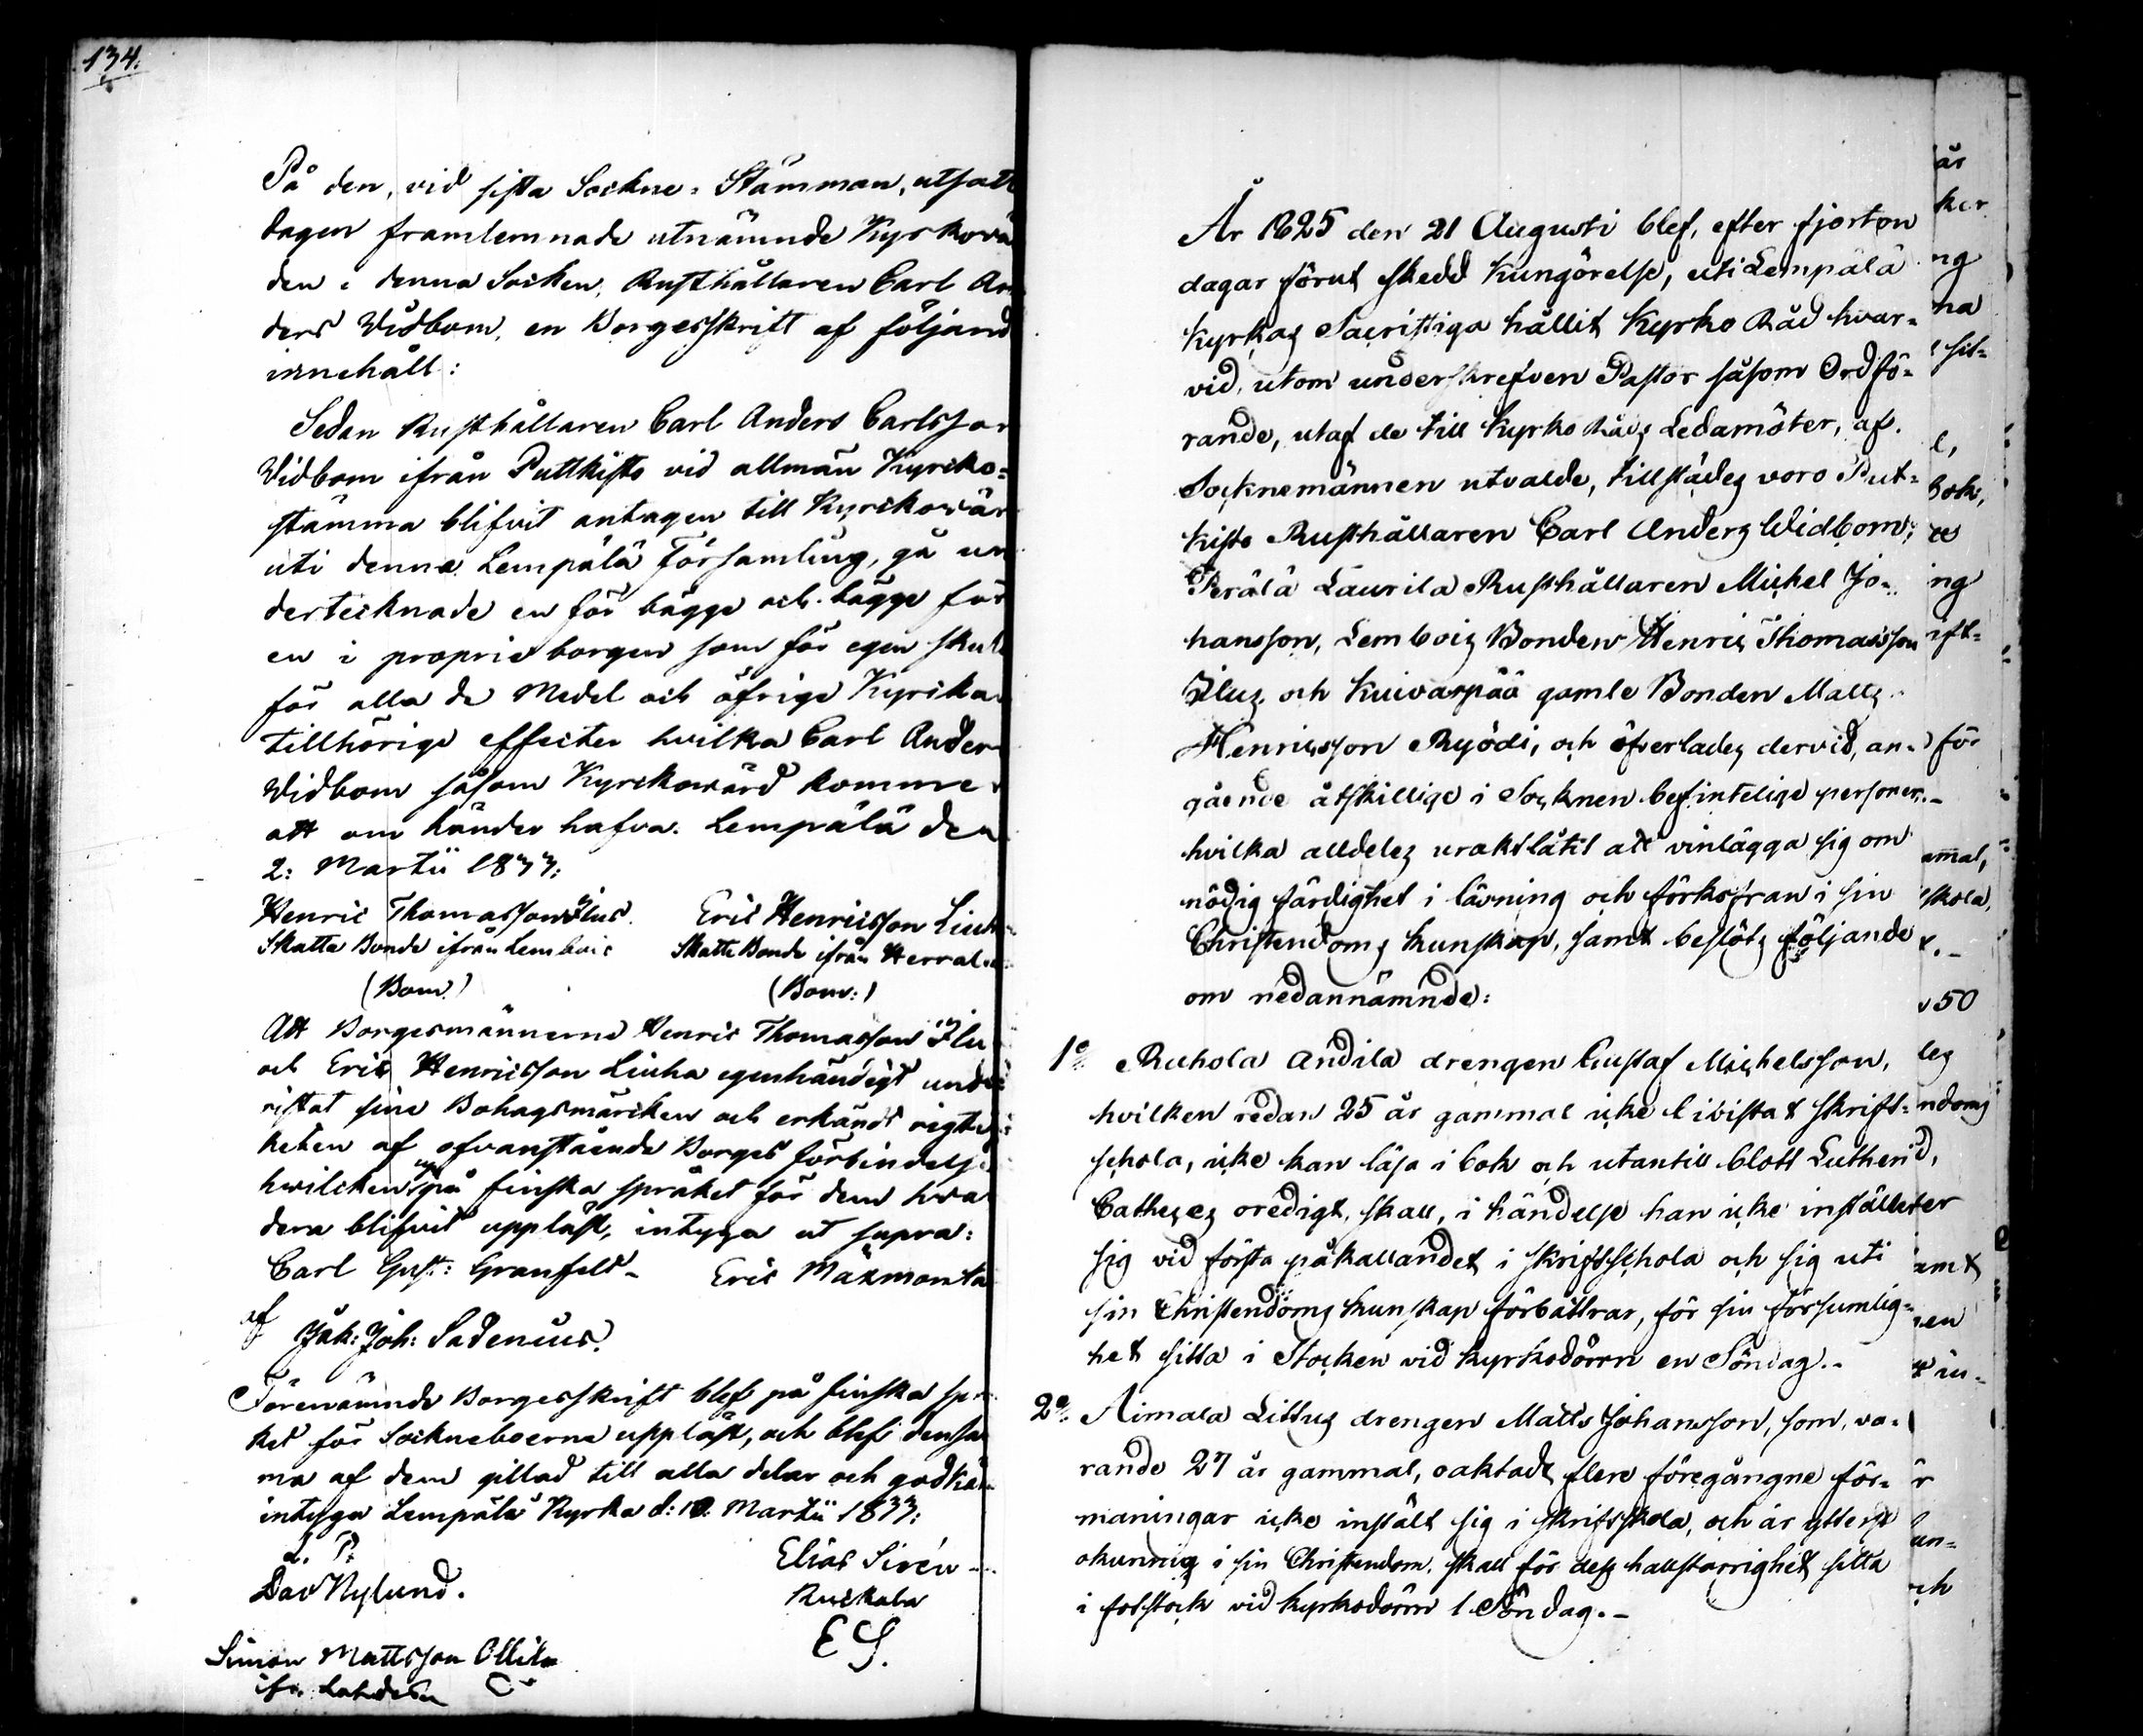 134.
På den, vid sista Sockne-Stämman, utsatt
dagen framlemnade utnämnde Kyrkovär
den i denna Socken, Rusthållaren Carl An
ders Widbom, en Borgesskrift af följand
innehåll:
Sedan Rusthållaren Carl Anders Carlsson
Widbom ifrån Puttkisto vid allmän Kyrcko-
stämma blifvit antagen till Kyrckovär
uti denna Lempälä Församling, gå un
dertecknade en för bägge och bägge för
en i proprie borgen som för egen skuld
för alla de Medel och öfrige Kyrcka
tillhörige effecter hvilka Carl Ander
Widbom såsom Kyrckovärd komme
att om händer hafva. Lempälä den
2: Martii 1833:
Henric Thomasson Ilus
Skatte Bonde ifrån Lembois
(Bom.)
Eric Henricsson Liuh
Skatte Bonde ifrån Herral
(Bom:)
Att Borgesmännerne Henric Thomasson Ilu
och Eric Henricsson Liuha egenhändigt und
ristat sine Bohagsmärcken och erkändt rigti
heten af ofvanstående Borges förbindelse
hwilcken på finska språket för dem hva
dera blifvit uppläst, intyga ut supra:
Carl Gust: Granfeld- Eric Mäxmonta
af
Jak: Joh: Sadenius.
Förenämnde Borgesskrift blef på finska sp
ket för Sockneboerne uppläst, och blef densa
ma af dem gillad till alla delar och godkän
intyga Lempälä Kyrka d: 10. Martii 1833:
L. P.
Dav Nylund.
Elias Sirén
Kuckala
E S.
Simon Mattsson Ollila
År 1825 den 21 Augusti blef, efter fjorton
dagar förut skedd Kungörelse, uti Lempälä
Kyrkas Sacristiga hållit Kyrko Råd hvar-
vid, utom underskrefven Pastor såsom Ordfö-
rande, utaf de till Kyrko Råds Ledamöter, af
Socknemännen utvalde, tillstädes voro Put-
kisto Rusthållaren Carl Anders Widbom,
Perälä Laurila Rusthållaren Michel Jo-
hansson, Lembois Bonden Henric Thomasson
Ilus och Kuivaspää gamle Bonden Matts
Henricsson Ryödi, och öfverlades dervid, an-
gående åtskillige i Socknen befintelige personer,
hvilka alldeles uraktlåtit att vinlägga sig om
nödig färdighet i läsning och förkofran i sin
Christendoms kunskap, samt beslöts följande
om nedannämnde:
1o Ruhola Andila drengen Gustaf Michelsson,
hvilken redan 25 år gammal icke bivistat skrift-
schola, icke kan läsa i bok och utantill blott Lutheri
Catheces oredigt, skall, i händelse han icke inställer
sig vid första påkallandet i skriftschola och sig uti
sin Christendoms kunskap förbättrar, för sin försumlig-
het sitta i Stocken vid kyrkodörrn en Söndag.-
2o Aimala Littus drengen Matts Johansson, som, va-
rande 27 år gammal, oaktadt flere föregångne för-
maningar icke instält sig i skriftskola, och är ytterst
okunnig i sin Christendom, skall för dess hallstarrighet sitta
i fotstock vid kyrkodörrn 1 Söndag.-
år
ker
ng
na
sit-
bok,
ng
för
ammal,
skola,
50
les
ndoms
samt
och